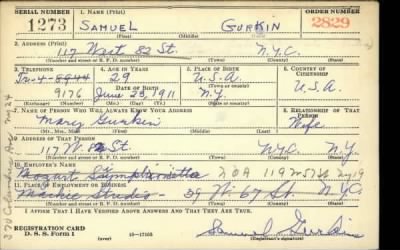 SERIAL NUMBER 1. NAME (Print) ORDER NUMBER
1273 SAMUEL GURKIN 2829
(First) (Middle) (Last)
2. ADDRESS (Print)
117 West 82 St. N.Y.C.
(Number and street or R. F. D. number) (Town) (County) (State)
3. TELEPHONE 4. AGE IN YEARS 5. PLACE OF BIRTH 6. COUNTRY OF CITIZENSHIP
Tr-4-8944 29 U.S.A. U.S.A.
9176 DATE OF BIRTH (Town or county)
June 23, 1911 N.Y.
(Exchange) (Number) (Mo.) (Day) (Yr.) (State or country)
7. NAME OF PERSON WHO WILL ALWAYS KNOW YOUR ADDRESS 8. RELATIONSHIP OF THAT PERSON
Mary Gurkin Wife
(Mr., Mrs., Miss) (First) (Middle) (Last)
9. ADDRESS OF THAT PERSON
117 W. 82 St. NYC N.Y.
(Number and street or R. F. D. number) (Town) (County) (State)
10. EMPLOYER'S NAME
Mozart Symphonietta
11. PLACE OF EMPLOYMENT OR BUSINESS
Studio - 39 W 67 St N.Y.C.
(Number and street or R. F. D. number) (Town) (County) (State)
I AFFIRM THAT I HAVE VERIFIED ABOVE ANSWERS AND THAT THEY ARE TRUE.
REGISTRATION CARD
D. S. S. Form 1 16-17105 Samuel Gurkin
(over) (Registrant's signature)
370 Columbus Ave